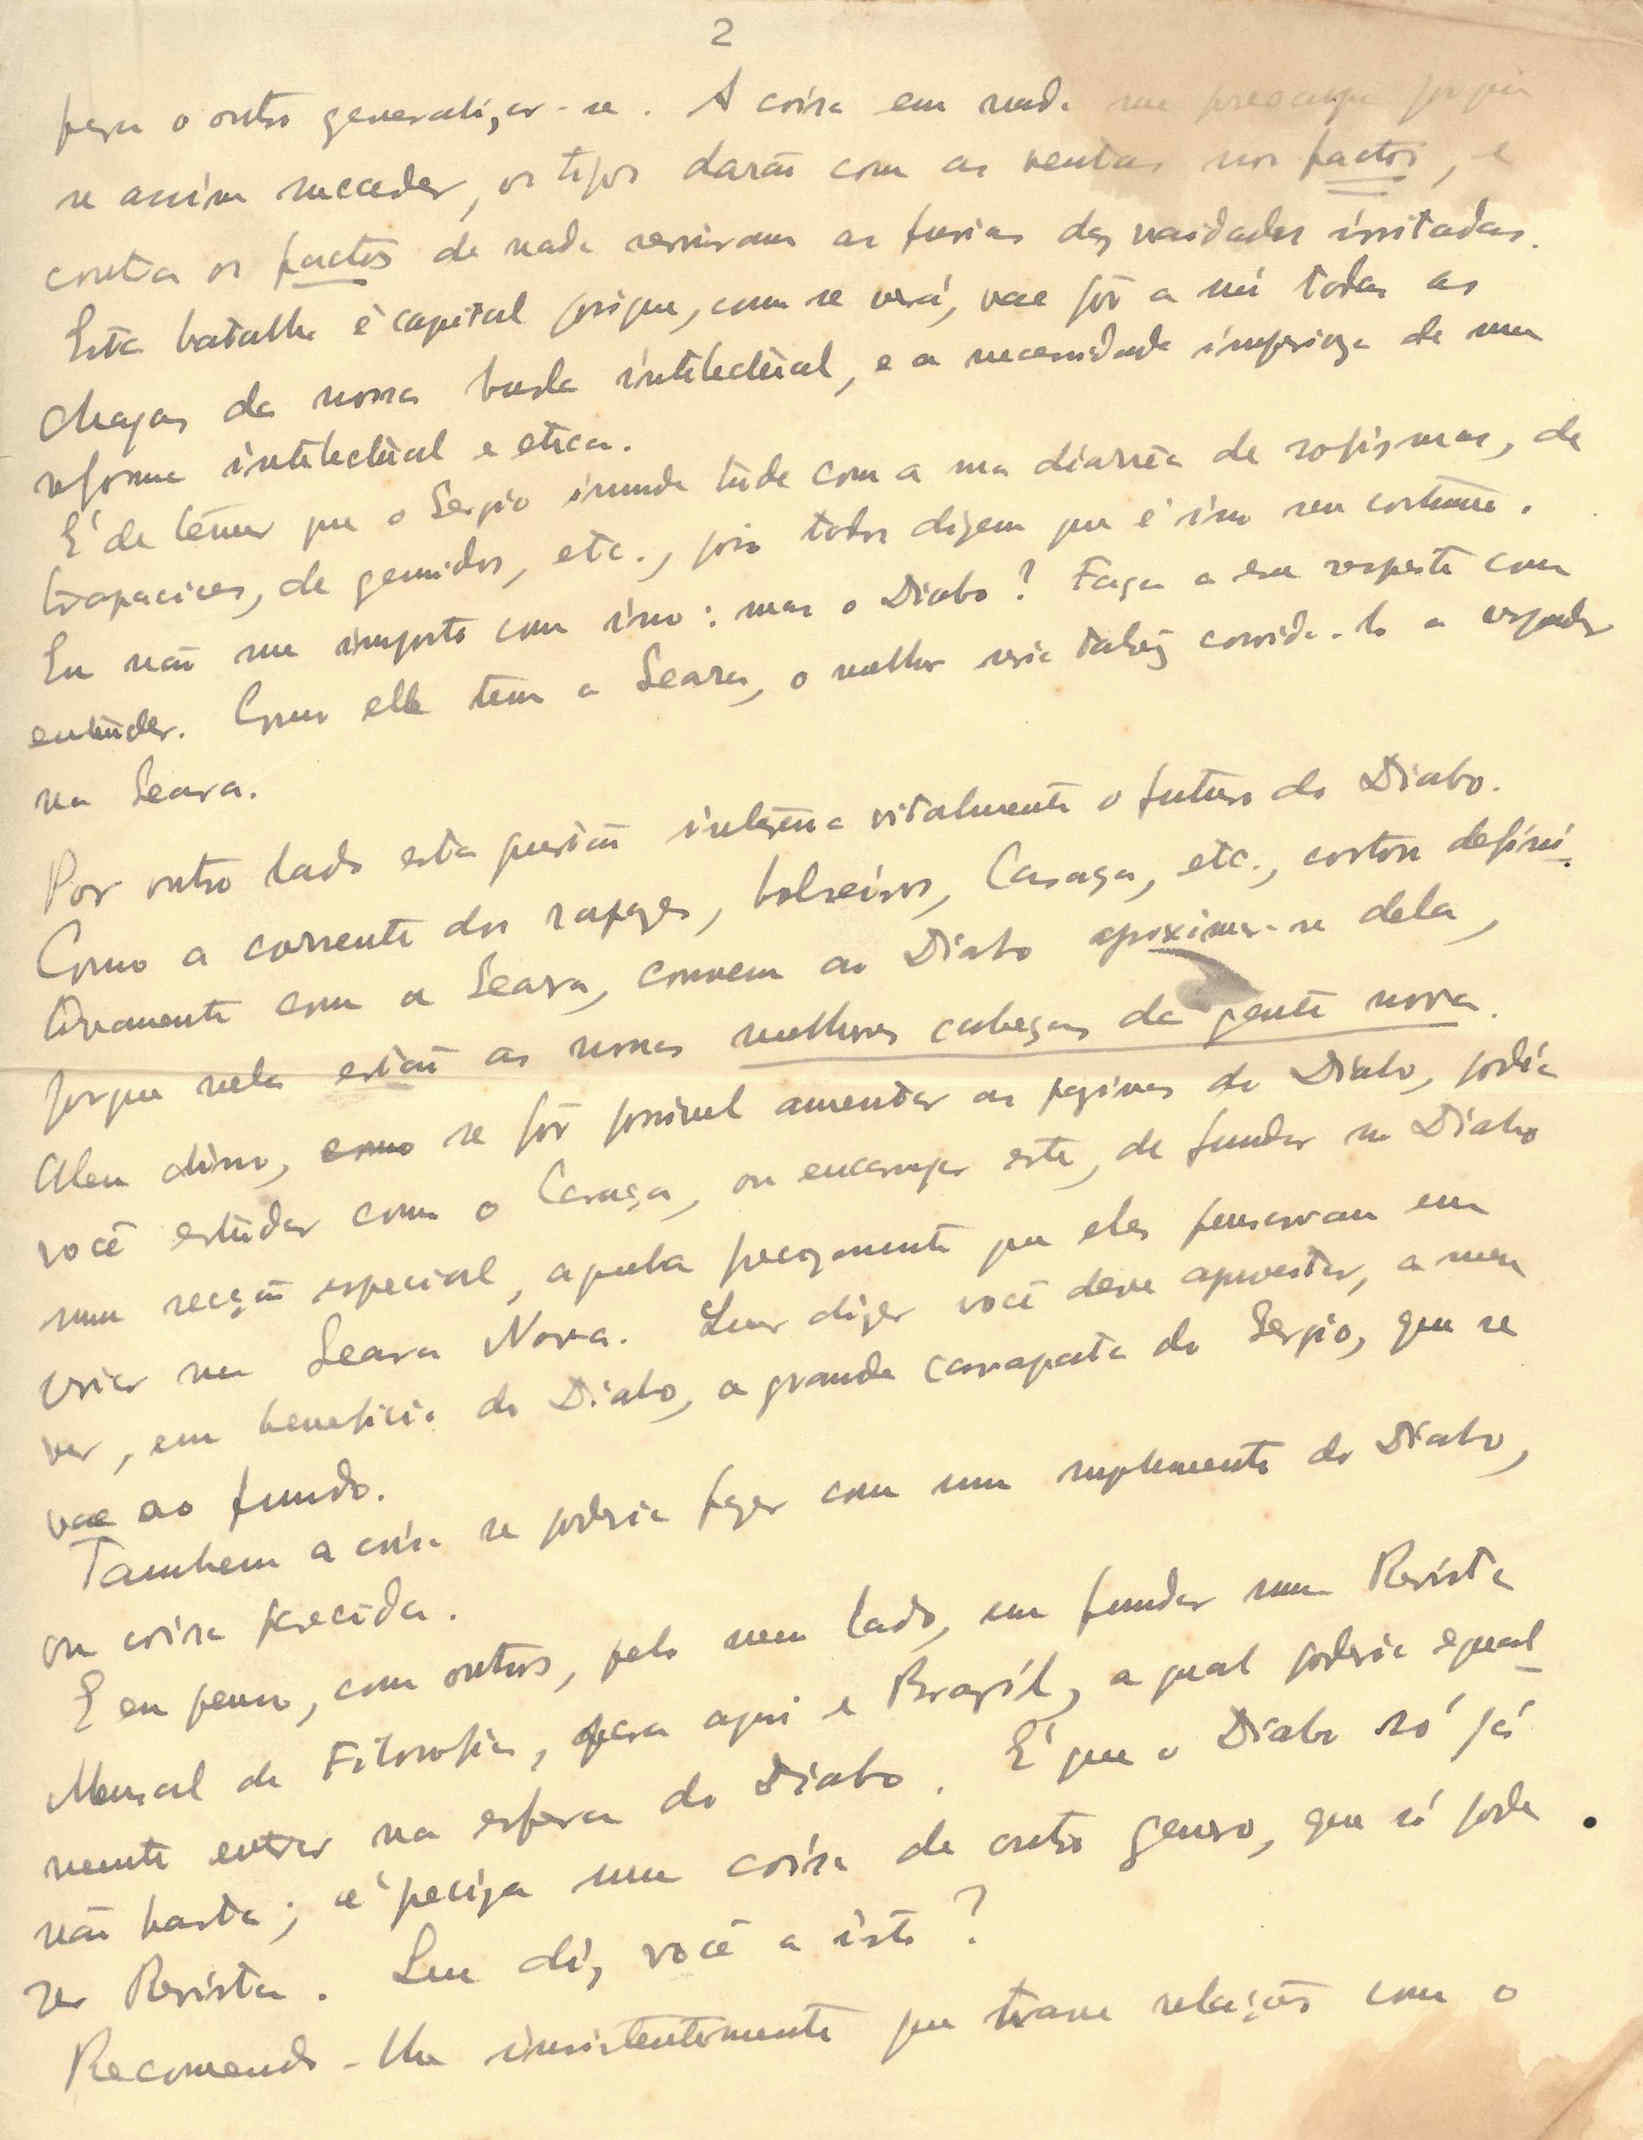 2
para o outro generalizar-se. A coisa em nada me preocupa porque
se assim suceder, os tipos darão com as ventas nos factos, e
contra os factos de nada serviram as furias das vaidades irritadas.
Esta batalha é capital porque, como se verá, vae pôr a nú todas as
chagas da nossa intelectual, e a necessidade imperioza de uma
reforma intelectual e etica.
É de temer que o Sergio inunde tude com a sua diarrêa de sofismas, de
trapacices, de gemidos, etc., pois todos dizem que é isso seu costume.
Eu não me importo com isso: mas o Diabo? Faça a esse respeito como
entender. Como elle tem a Seara, o melhor seria talvez convida-lo a responder
na Seara.
Por outro lado esta questão interessa vitalmente o futuro do Diabo.
Como a corrente dos rapazes, bolseiros, Caraça, etc., cortou defini-
tivamente com a Seara, convem ao Diabo aproximar-se dela,
porque nela estão as nossas melhores cabeças da gente nova.
Alem disso, como se fôr possivel amentar as paginas do Diabo, podia
você estudar com o Caraça, ou encarregar este, de fundar no Diabo
uma secção especial, aquela precizamente que eles pensavam em
criar na Seara Nova. Quer dizer você deve aproveitar, a meu
ver, em beneficio do Diabo, a grande carrapata do Sergio, que se
vae ao fundo.
Tambem a coisa se poderia fazer com um suplemento do Diabo,
ou coisa parecida.
E eu penso, com outros, pelo meu lado, em fundar uma Revista
Mensal de Filosofia, para aqui e Brazil, a qual poderia egual-
mente entrar na esfera do Diabo. É que o Diabo só já
não basta; é preciza uma coisa de outro genero, que só pode
ser Revista. Que diz você a isto?
Recomendo-lhe insistentemente que trave relações com o